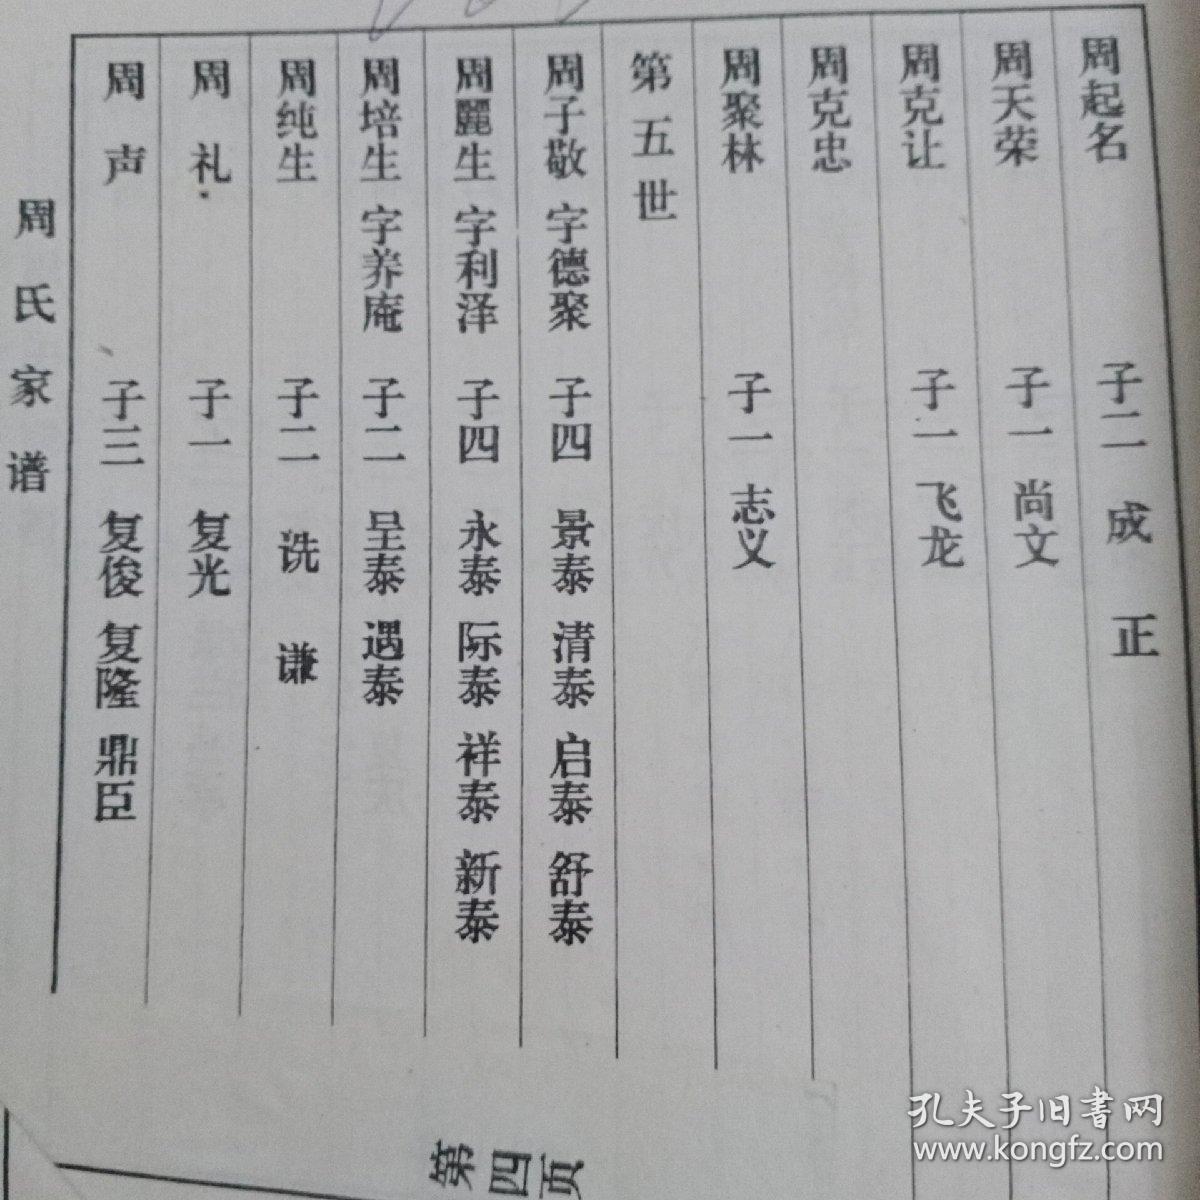 周起名 子二 成 正
周天荣 子一 尚文
周克让 子一 飞龙
周克忠
周聚林 子一 志义
第五世
周子敬 字德聚 子四 景泰 清泰 启泰 舒泰
周麗生 字利泽 子四 永泰 际泰 祥泰 新泰
周培生 字养庵 子二 呈泰 遇泰
周纯生 子二 诜 谦
周礼 子一 复光
周声 子三 复俊 复隆 鼎臣
周氏家谱
第四页
孔夫子旧书网
www.kongfz.com